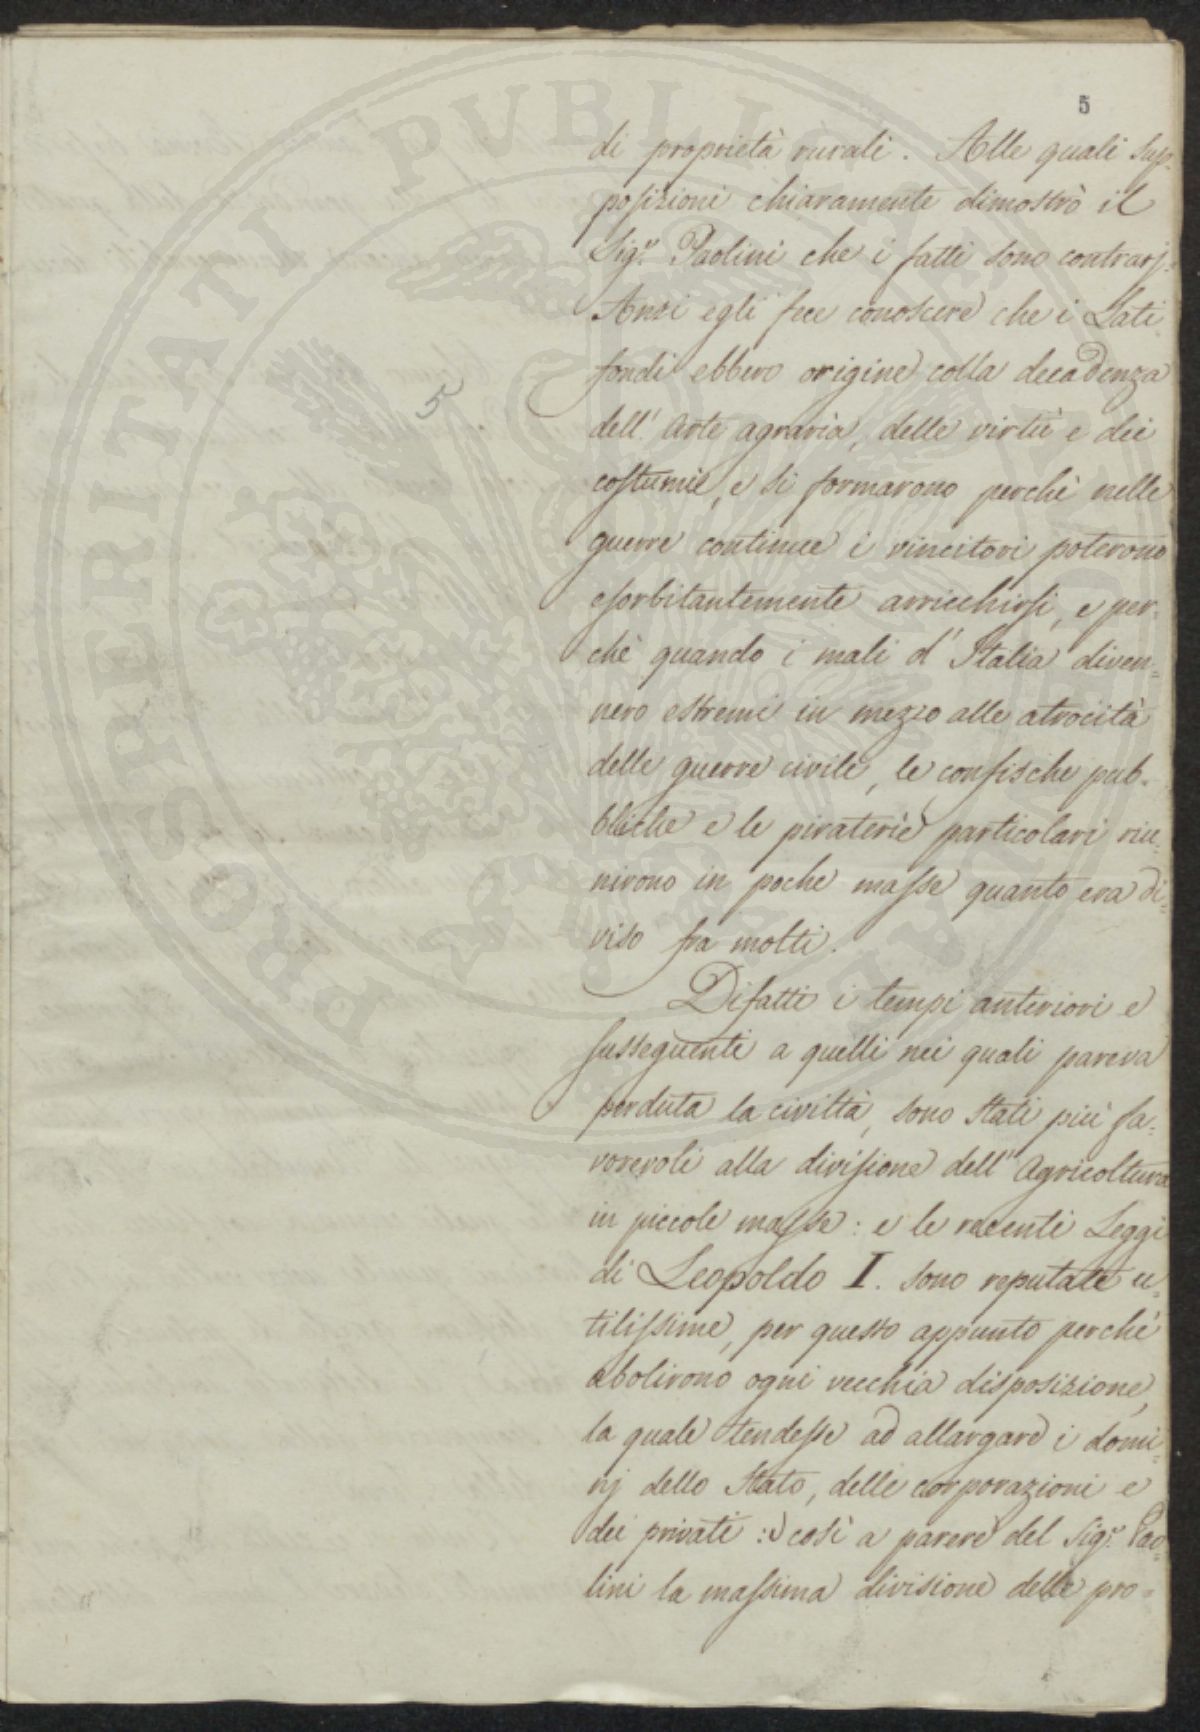 5
di proprietà rurali. Alle quali sup-
posizioni chiaramente dimostrò il
Sigr. Paolini che i fatti sono contrarj.
Anzi egli fece conoscere che i Lati
fondi ebbero origine colla decadenza
dell' Arte agraria, delle virtù e dei
costumi, e si formarono perchè nelle
guerre continue i vincitori poterono
esorbitantemente arricchirsi, e per-
chè quando i mali d' Italia diven-
nero estremi in mezzo alle atrocità
delle guerre civili, le confische pub-
bliche e le piraterie particolari riu-
nirono in poche masse quanto era di-
viso fra molti.
Difatti i tempi anteriori e
susseguenti a quelli nei quali pareva
perduta la civiltà, sono stati più fa-
vorevoli alla divisione dell' Agricoltura
in piccole masse: e le recenti Leggi
di Leopoldo I. sono reputate u-
tilissime, per questo appunto perchè
abolirono ogni vecchia disposizione,
la quale tendesse ad allargare i domi-
nj dello Stato, delle corporazioni e
dei privati: così a parere del Sigr. Pao-
lini la massima divisione delle pro-
5
PROSPERITATI PUBLICAE